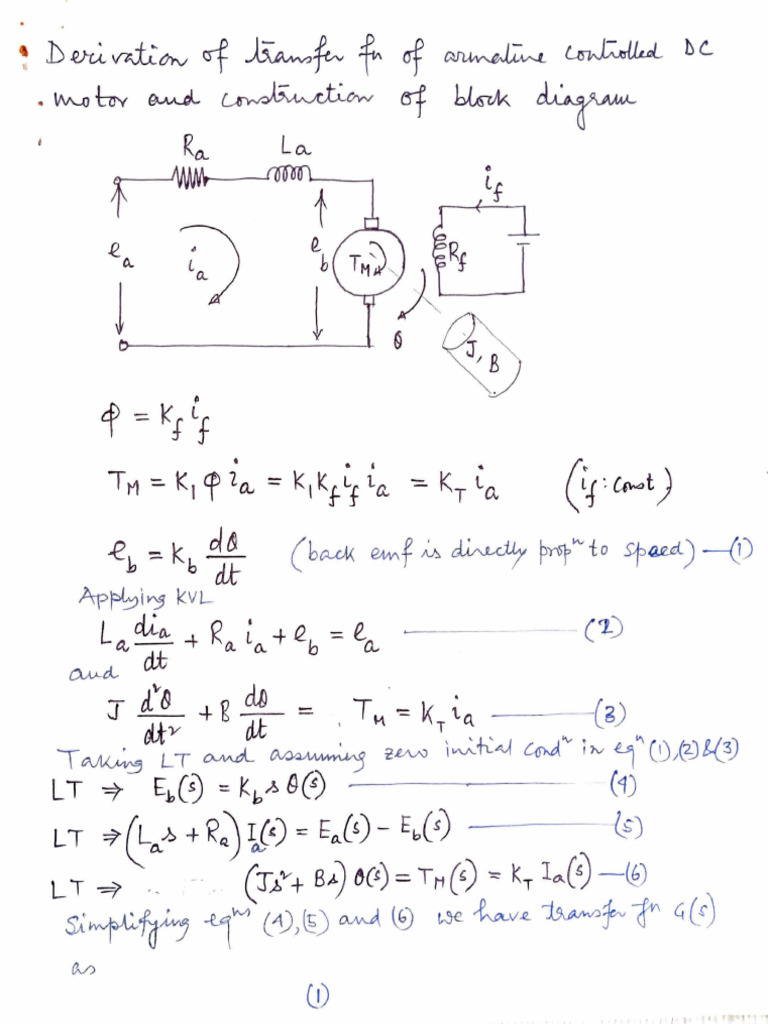 Derivation of transfer fn of armature controlled DC
motor and construction of block diagram
Ra La
i_f
e_a i_a e_b T_M R_f
θ J, B
φ = K_f i_f
T_M = K_1 φ i_a = K_1 K_f i_f i_a = K_T i_a (i_f : const)
e_b = K_b dθ/dt (back emf is directly propⁿ to speed) — (1)
Applying KVL
L_a di_a/dt + R_a i_a + e_b = e_a — (2)
and
J d²θ/dt² + B dθ/dt = T_M = K_T i_a — (3)
Taking LT and assuming zero initial condⁿ in eqⁿ (1),(2)&(3)
LT ⇒ E_b(s) = K_b s θ(s) — (4)
LT ⇒ (L_a s + R_a) I_a(s) = E_a(s) − E_b(s) — (5)
LT ⇒ (Js² + Bs) θ(s) = T_M(s) = K_T I_a(s) — (6)
Simplifying eqⁿˢ (4),(5) and (6) we have transfer fn G(s)
as
(1)